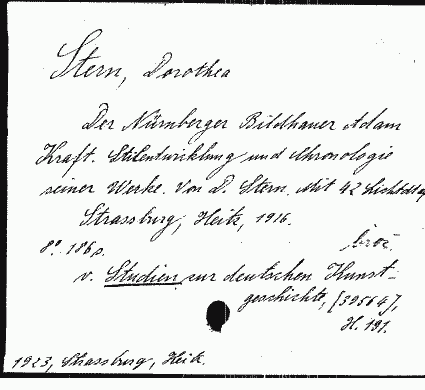 Stern, Dorothea
Der Nürnberger Bildhauer Adam
Kraft. Stilentwicklung und Chronologie
seiner Werke. Von D. Stern. Mit 42 Lichtdr
Strassburg, Heitz, 1916.
8°. 186 s. broż.
v. Studien zur deutschen Kunst-
geschichte, [39564],
H. 191.
1923, Strassburg, Heitz.